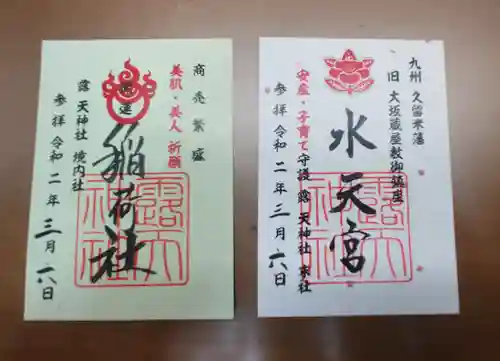 九州 久留米藩
旧 大坂蔵屋敷御鎮座
水天宮
安産・子育て守護 露 天神社 末社
参拝 令和 二年 三月 一六日
商売繁盛
美肌・美人 祈願
開運
稲荷社
露 天神社 境内社
参拝 令和 二年 三月 一六日